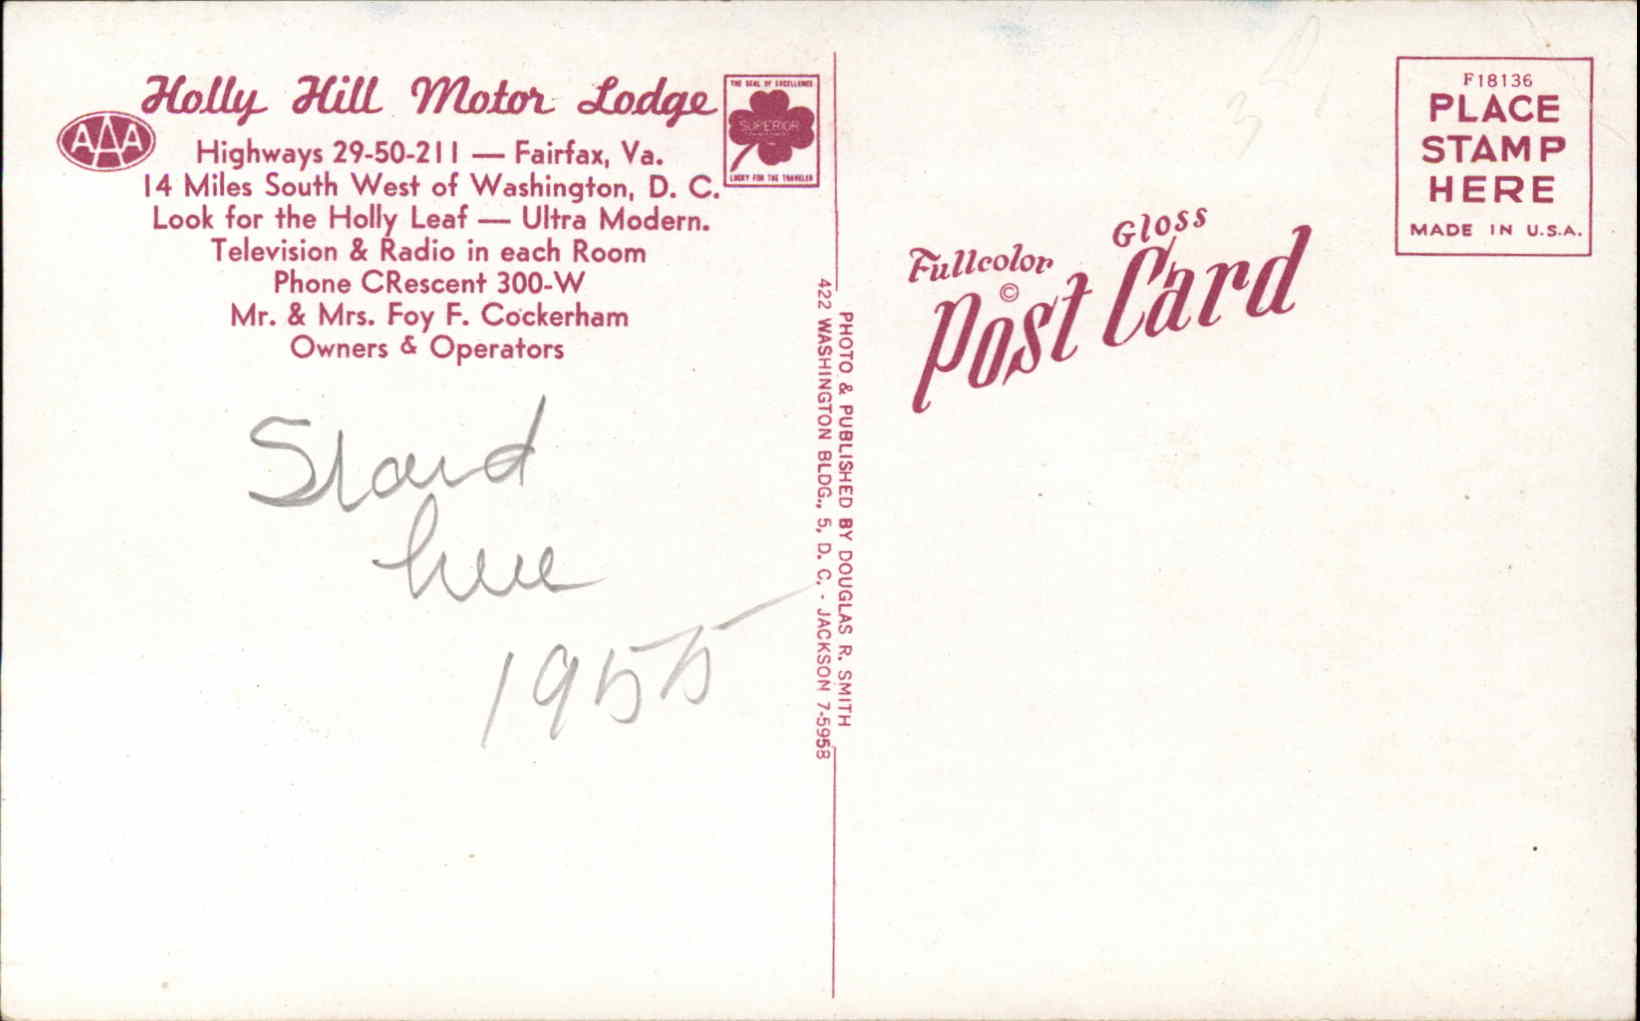 Holly Hill Motor Lodge
AAA
Highways 29-50-211 — Fairfax, Va.
14 Miles South West of Washington, D. C.
Look for the Holly Leaf — Ultra Modern.
Television & Radio in each Room
Phone CRescent 300-W
Mr. & Mrs. Foy F. Cockerham
Owners & Operators
THE SEAL OF EXCELLENCE
SUPERIOR
LUCKY FOR THE TRAVELER
here
1955
PHOTO & PUBLISHED BY DOUGLAS R. SMITH
422 WASHINGTON BLDG., 5, D. C. - JACKSON 7-5958
Fullcolor Gloss
Post Card
©
F18136
PLACE
STAMP
HERE
MADE IN U.S.A.